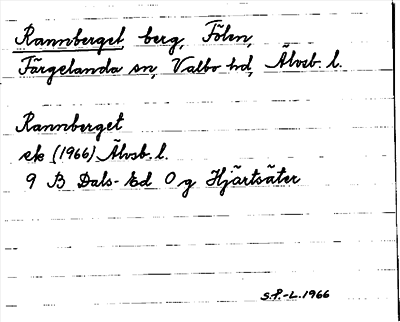 Rannberget berg, Fölen,
Färgelanda sn, Valbo hd, Älvsb. l.
Rannberget
ek (1966) Älvsb. l.
9 B Dals-Ed O g Hjärtsäter
S.F.-L. 1966